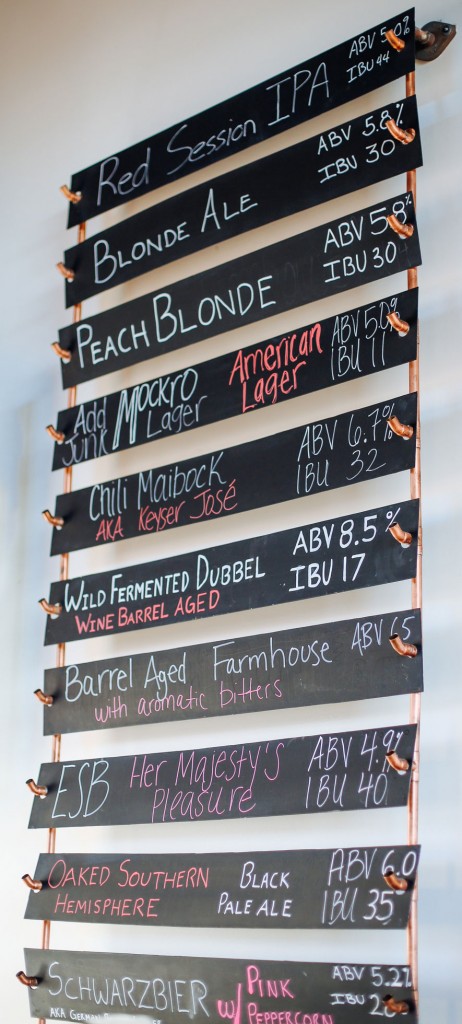 Red Session IPA ABV 5.0%
IBU 44
Blonde Ale ABV 5.8%
IBU 30
Peach Blonde ABV 5.8%
IBU 30
Add Junk Mockro Lager American Lager ABV 5.0%
IBU 11
Chili Maibock ABV 6.7%
AKA Keyser José IBU 32
Wild Fermented Dubbel ABV 8.5%
Wine Barrel Aged IBU 17
Barrel Aged Farmhouse ABV 6.5
with aromatic bitters
ESB Her Majesty's Pleasure ABV 4.9%
IBU 40
Oaked Southern Hemisphere Black Pale Ale ABV 6.0
IBU 35
Schwarzbier w/ Pink Peppercorn ABV 5.2%
AKA German IBU